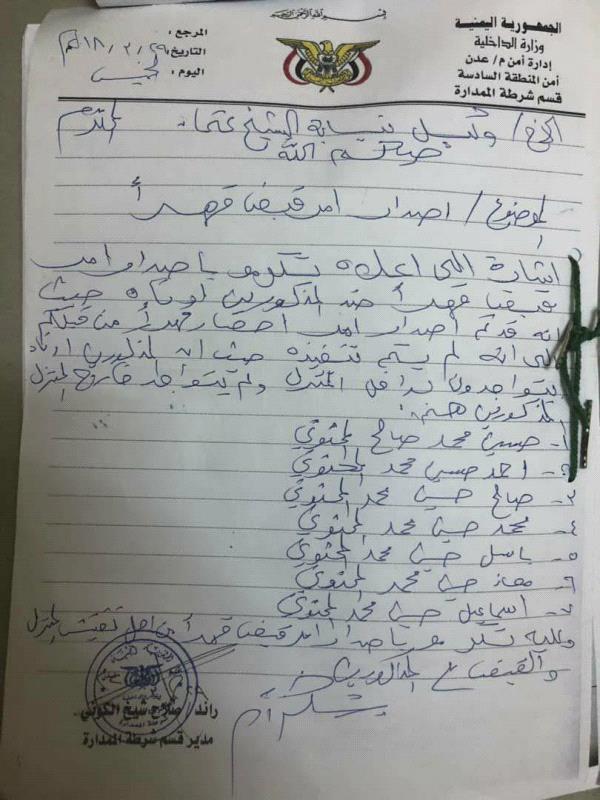 بسم الله الرحمن الرحيم
الجمهورية اليمنية
وزارة الداخلية
إدارة أمن م/ عدن
أمن المنطقة السادسة
قسم شرطة الممدارة
المرجع :
التاريخ : ٢٩/ ٣/ ١٨م
اليوم : خميس
الأخ/ وكيل نيابة الشيخ عثمان المحترم
حياكم الله
الموضوع/ اصدار امر قبض قهراً
اشارة الى اعلاه تكرموا باصدار امر
قبض قهراً ضد المذكورين ادناه حيث
انه قد تم اصدار امر احضار قهراً من قبلكم
الى انه لم يتم تنفيذه حيث ان المذكورين ادناه
يتواجدون داخل المنزل ولم يتواجد خارج المنزل
المذكورين هم:
١- حسين محمد صالح
٢- احمد حسين محمد
٣- صالح حسين محمد
٤- محمد حسين محمد
٥- باسل حسين محمد
٦- معاذ حسين محمد
٧- اسماعيل حسين محمد
وعليه تكرموا باصدار امر قبض قهراً من اجل تفتيش المنزل
والقبض على المذكورين
وشكراً
رائد/ صلاح شيخ الكوني
مدير قسم شرطة الممدارة